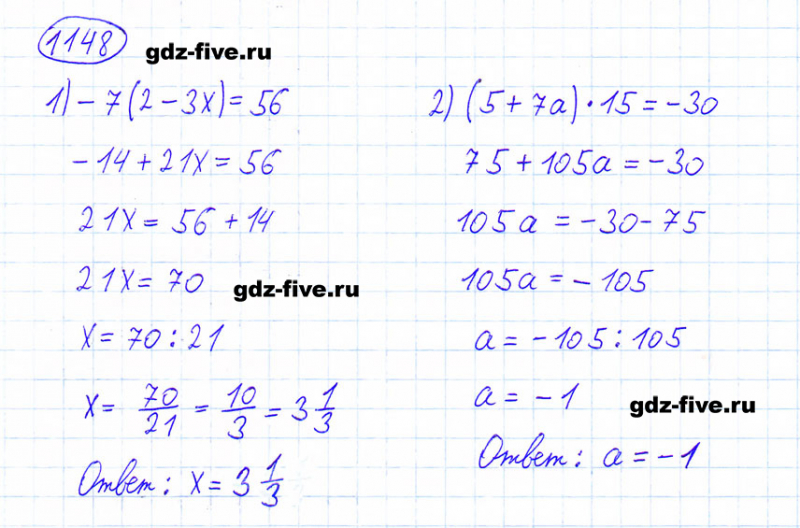 1148
gdz-five.ru
1) - 7(2 - 3x) = 56
- 14 + 21x = 56
21x = 56 + 14
21x = 70
gdz-five.ru
x = 70 : 21
x = 70/21 = 10/3 = 3 1/3
Ответ: x = 3 1/3
2) (5 + 7a) · 15 = -30
75 + 105a = -30
105a = -30 - 75
105a = - 105
a = -105 : 105
a = -1
gdz-five.ru
Ответ: a = -1